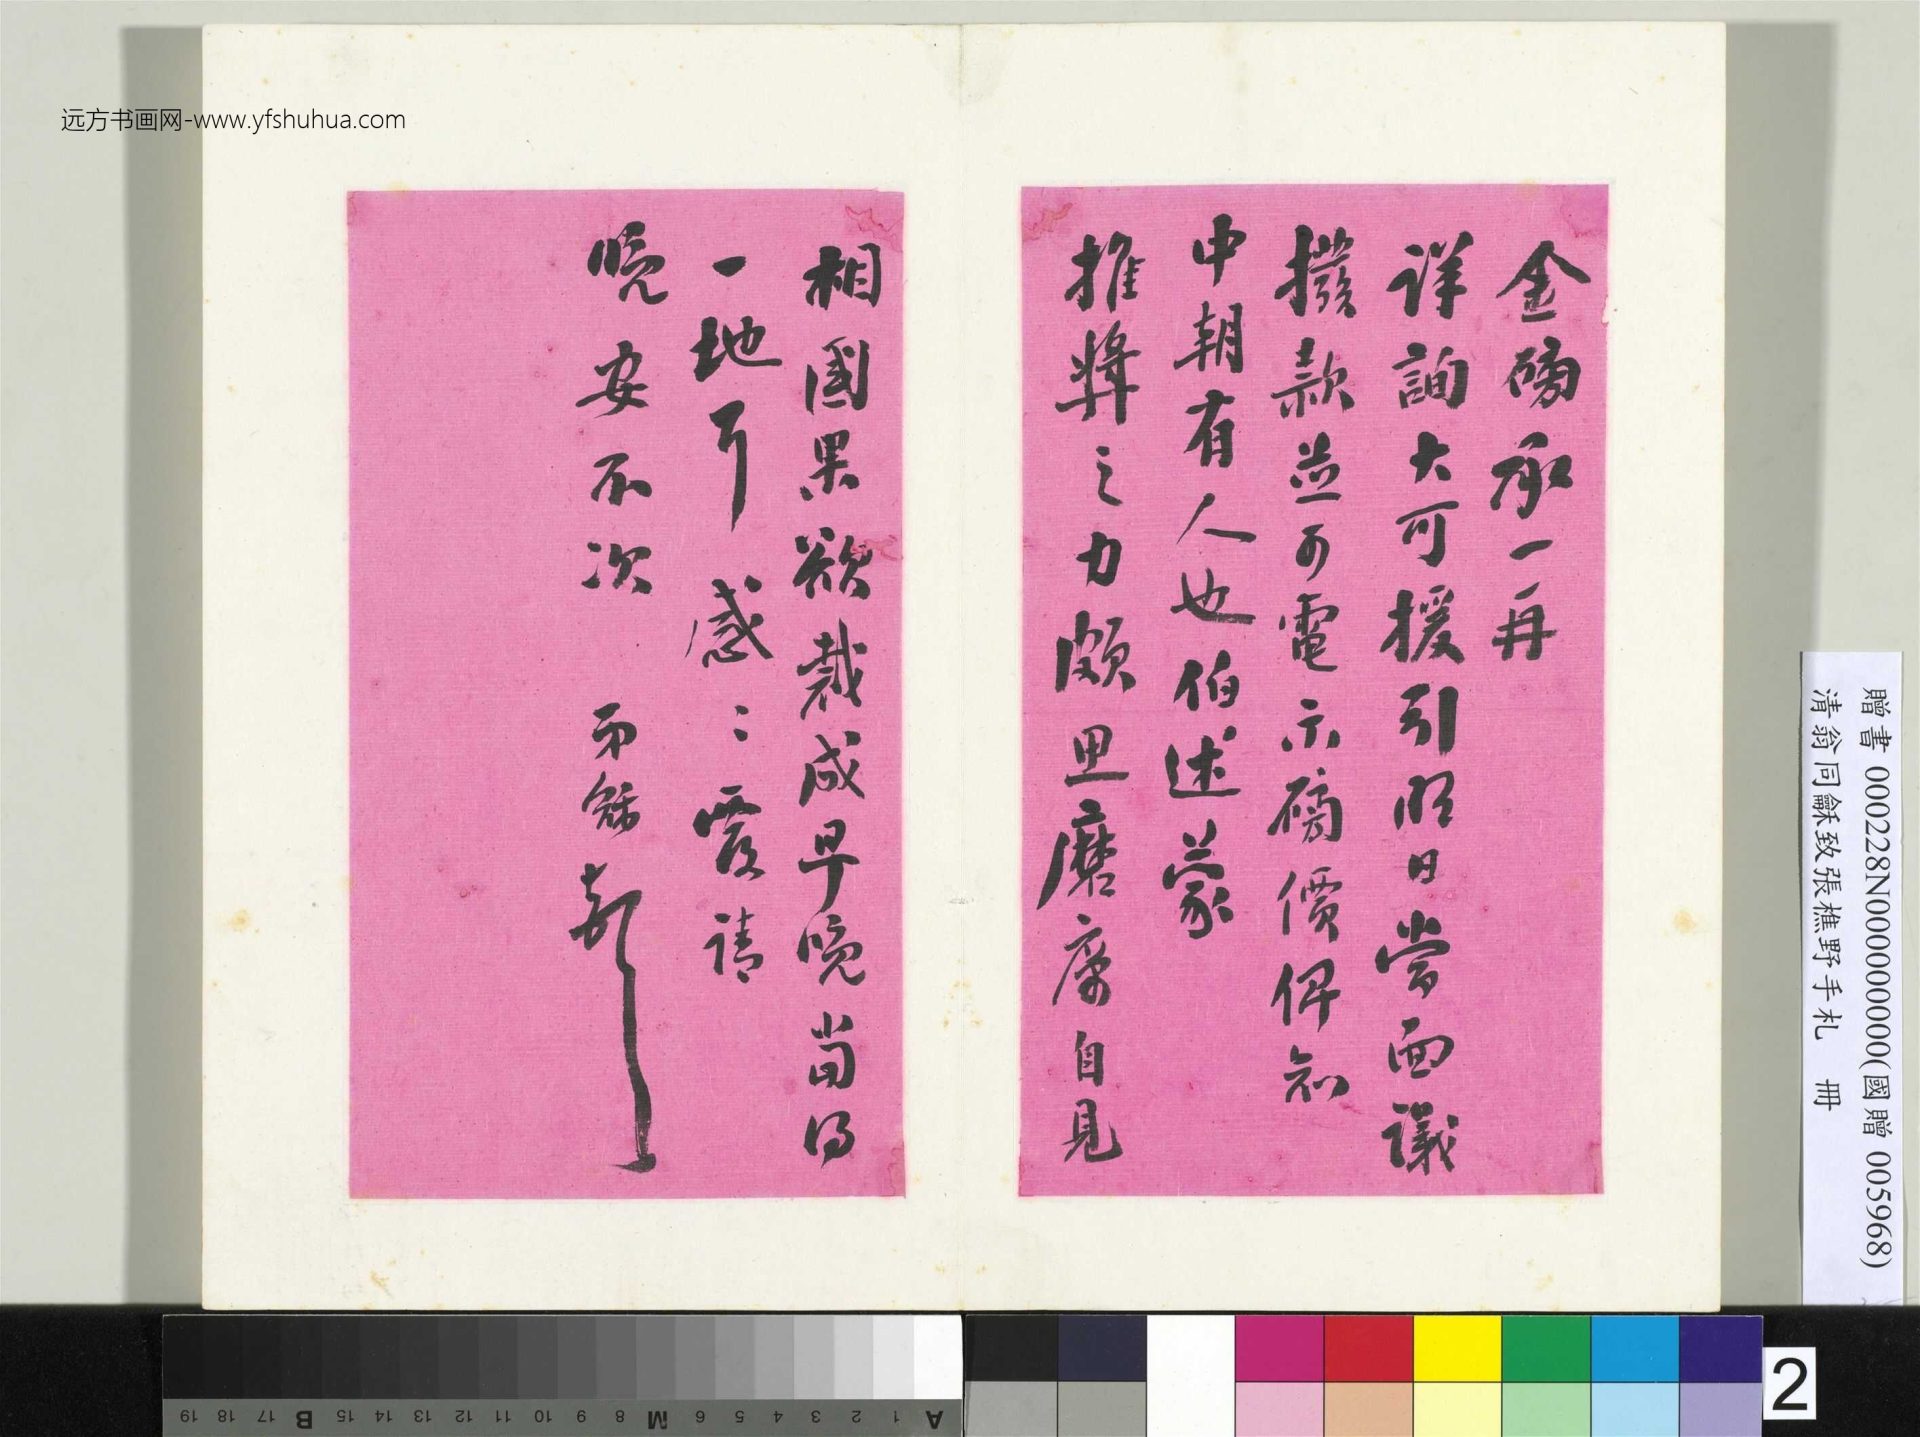 远方书画网-www.yfshuhua.com
金磅承一再
詳詢大可援引明日當面議
撥款並可電示磅價俾知
中朝有人也伯述蒙
推獎之力頗思磨厲自見
相國果欲裁成早晚當得
一地耳感〻覆請
晚安不次 弟龢頓
贈書 000228N000000000(國贈 005968)
清翁同龢致張樵野手札 冊
2
A 1 2 3 4 5 6 M 8 9 10 11 12 13 14 15 B 17 18 19